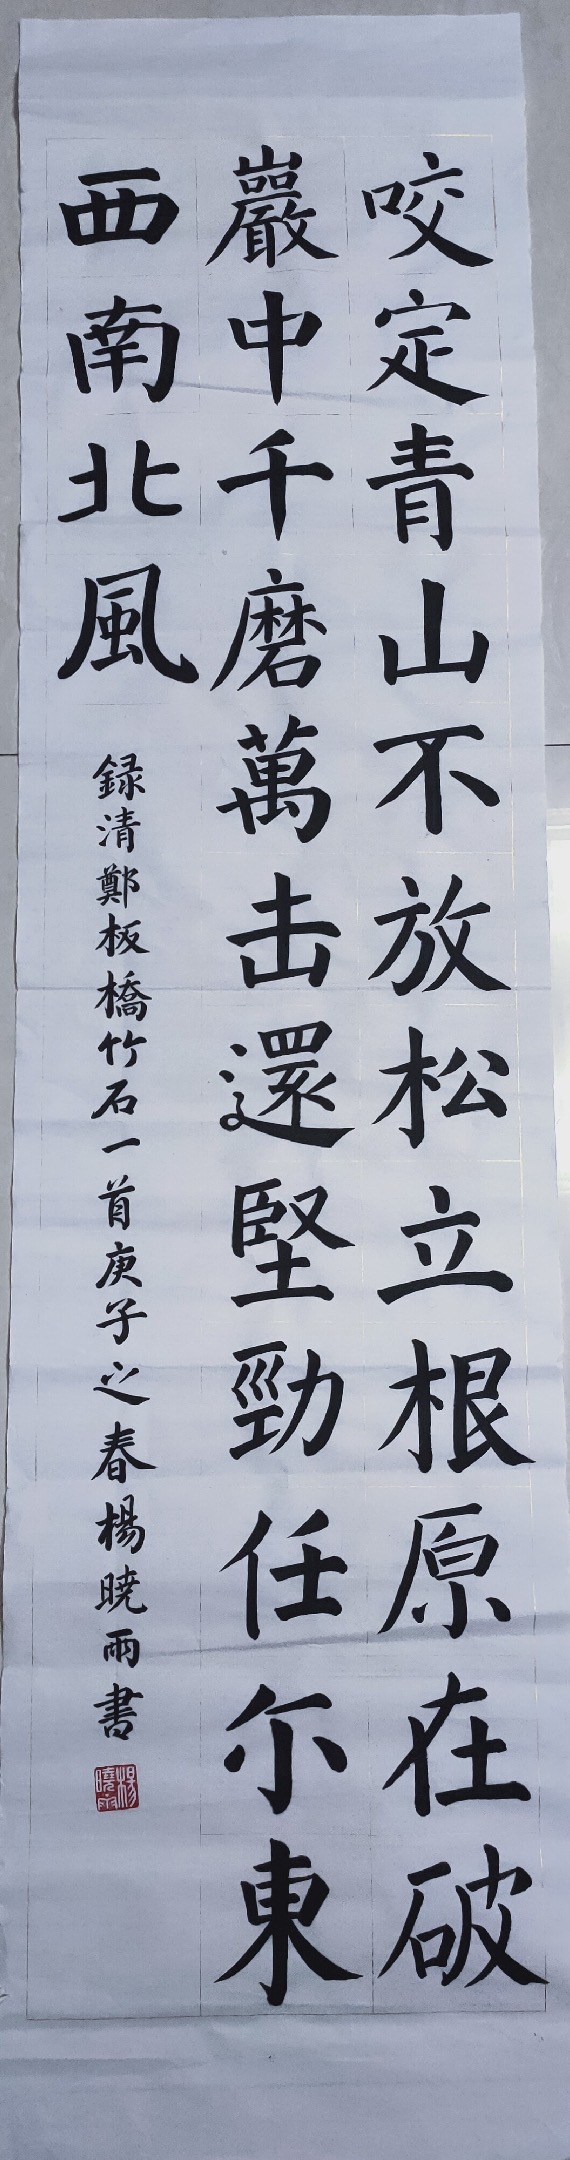 咬定青山不放松立根原在破
巖中千磨萬击還堅勁任尓東
西南北風
録清鄭板橋竹石一首庚子之春楊曉雨書
楊曉雨